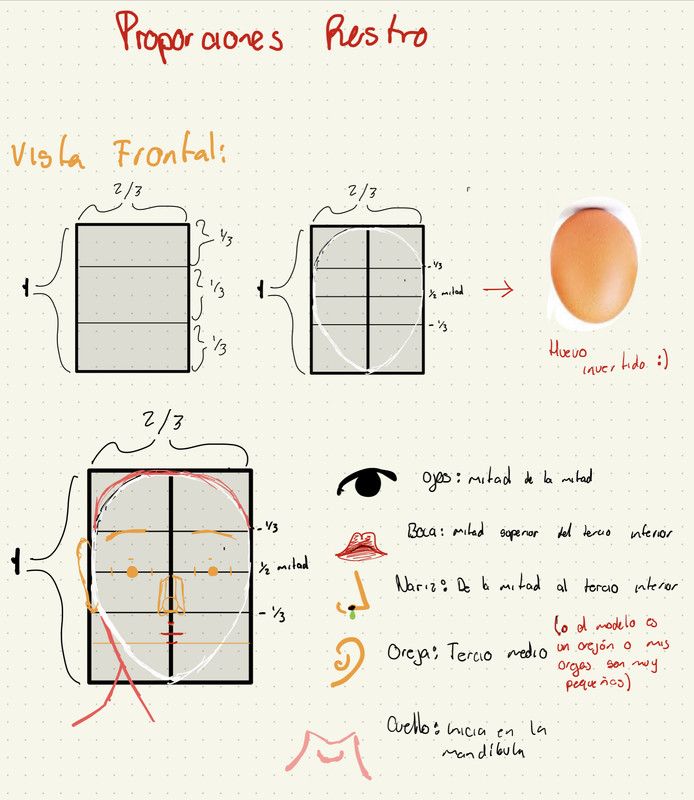 Proporciones Rostro
Vista Frontal:
2/3
1
1/3
1/3
1/3
2/3
1
- 1/3
1/2 mitad
- 1/3
Huevo
invertido :)
2/3
1
- 1/3
1/2 mitad
- 1/3
Ojos: mitad de la mitad
Boca: mitad superior del tercio inferior
Nariz: De la mitad al tercio inferior
Oreja: Tercio medio
(o el modelo es
un orejón o mis
orejas son muy
pequeñas)
Cuello: inicia en la
mandíbula